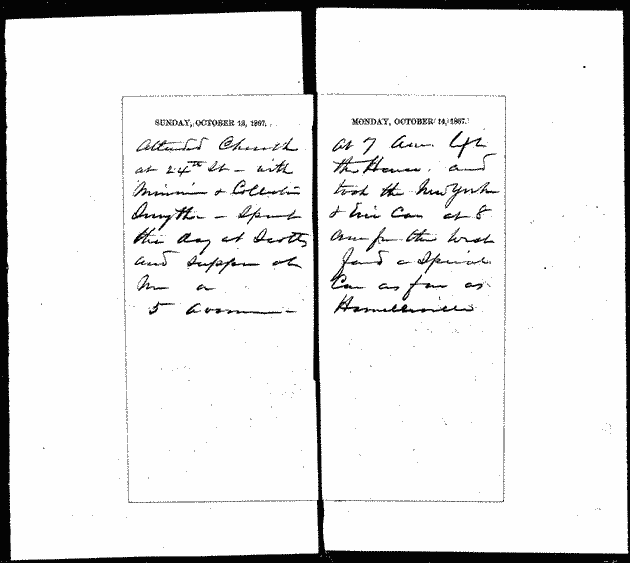 SUNDAY, OCTOBER 13, 1867.
Attended Church
at 24th St - with
Minnie & Collector
Smythe - Spent
the day at Scotts
and supper at
5 Avenue -
MONDAY, OCTOBER 14, 1867.
At 7 Am. left
the House. and
took the New York
& Erie Cars at 8
Am for the West
Had a Special
Car as far as
Hornellsville